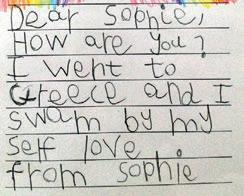 Dear Sophie,
How are you?
I went to
Greece and I
swam by my
self love
from sophie